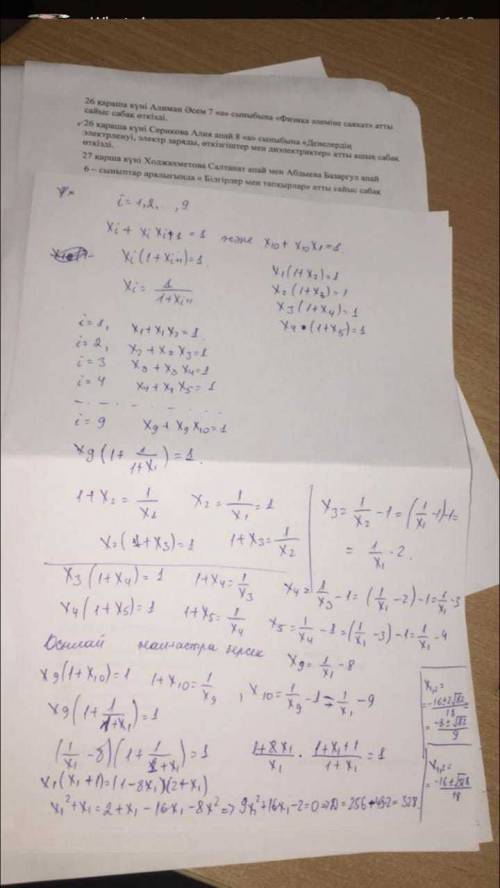 26 қараша күні Алиман Әсем 7 «а» сыныбына «Физика әлеміне саяхат» атты
сайыс сабақ өткізді.
26 қараша күні Серикова Алия апай 8 «а» сыныбына «Денелердің
электрленуі, электр заряды, өткізгіштер мен диэлектриктер» атты ашық сабақ
өткізді.
27 қараша күні Ходжахметова Салтанат апай мен Абдыева Базаргул апай
6 – сыныптар аралығында « Білгірлер мен тапқырлар» атты сайыс сабақ
i = 1,2, ..., 9
xi + xi xi+1 = 1 және x10 + x10 x1 = 1
xi (1 + xi+1) = 1
xi = 1/(1+xi+1)
x1 (1+x2) = 1
x2 (1+x3) = 1
x3 (1+x4) = 1
x4 (1+x5) = 1
i = 1, x1 + x1 x2 = 1
i = 2, x2 + x2 x3 = 1
i = 3 x3 + x3 x4 = 1
i = 4 x4 + x4 x5 = 1
i = 9 x9 + x9 x10 = 1
x9 (1 + 1/(1+x1)) = 1
1 + x2 = 1/x1 x2 = 1/x1 = 1
x2 (1+x3) = 1 1+x3 = 1/x2
x3 = 1/x2 - 1 = (1/x1 - 1) - 1 =
= 1/x1 - 2.
x3 (1+x4) = 1 1+x4 = 1/x3 x4 = 1/x3 - 1 = (1/x1 - 2) - 1 = 1/x1 - 3
x4 (1+x5) = 1 1+x5 = 1/x4 x5 = 1/x4 - 1 = (1/x1 - 3) - 1 = 1/x1 - 4
Осылай жалғастыра берсек x9 = 1/x1 - 8
x9 (1+x10) = 1 1+x10 = 1/x9, x10 = 1/x9 - 1 = 1/x1 - 9
x9 (1 + 1/(1+x1)) = 1
(1/x1 - 8)(1 + 1/(1+x1)) = 1 (1-8x1)/x1 · (1+x1+1)/(1+x1) = 1
x1 (x1+1) = (1-8x1)(2+x1)
x1² + x1 = 2 + x1 - 16x1 - 8x² => 9x1² + 16x1 - 2 = 0 => D = 256 + 72 = 328
x1,2 =
= (-16 ± 2√82)/18 =
= (-8 ± √82)/9
x1,2 =
= (-16 ± √328)/18